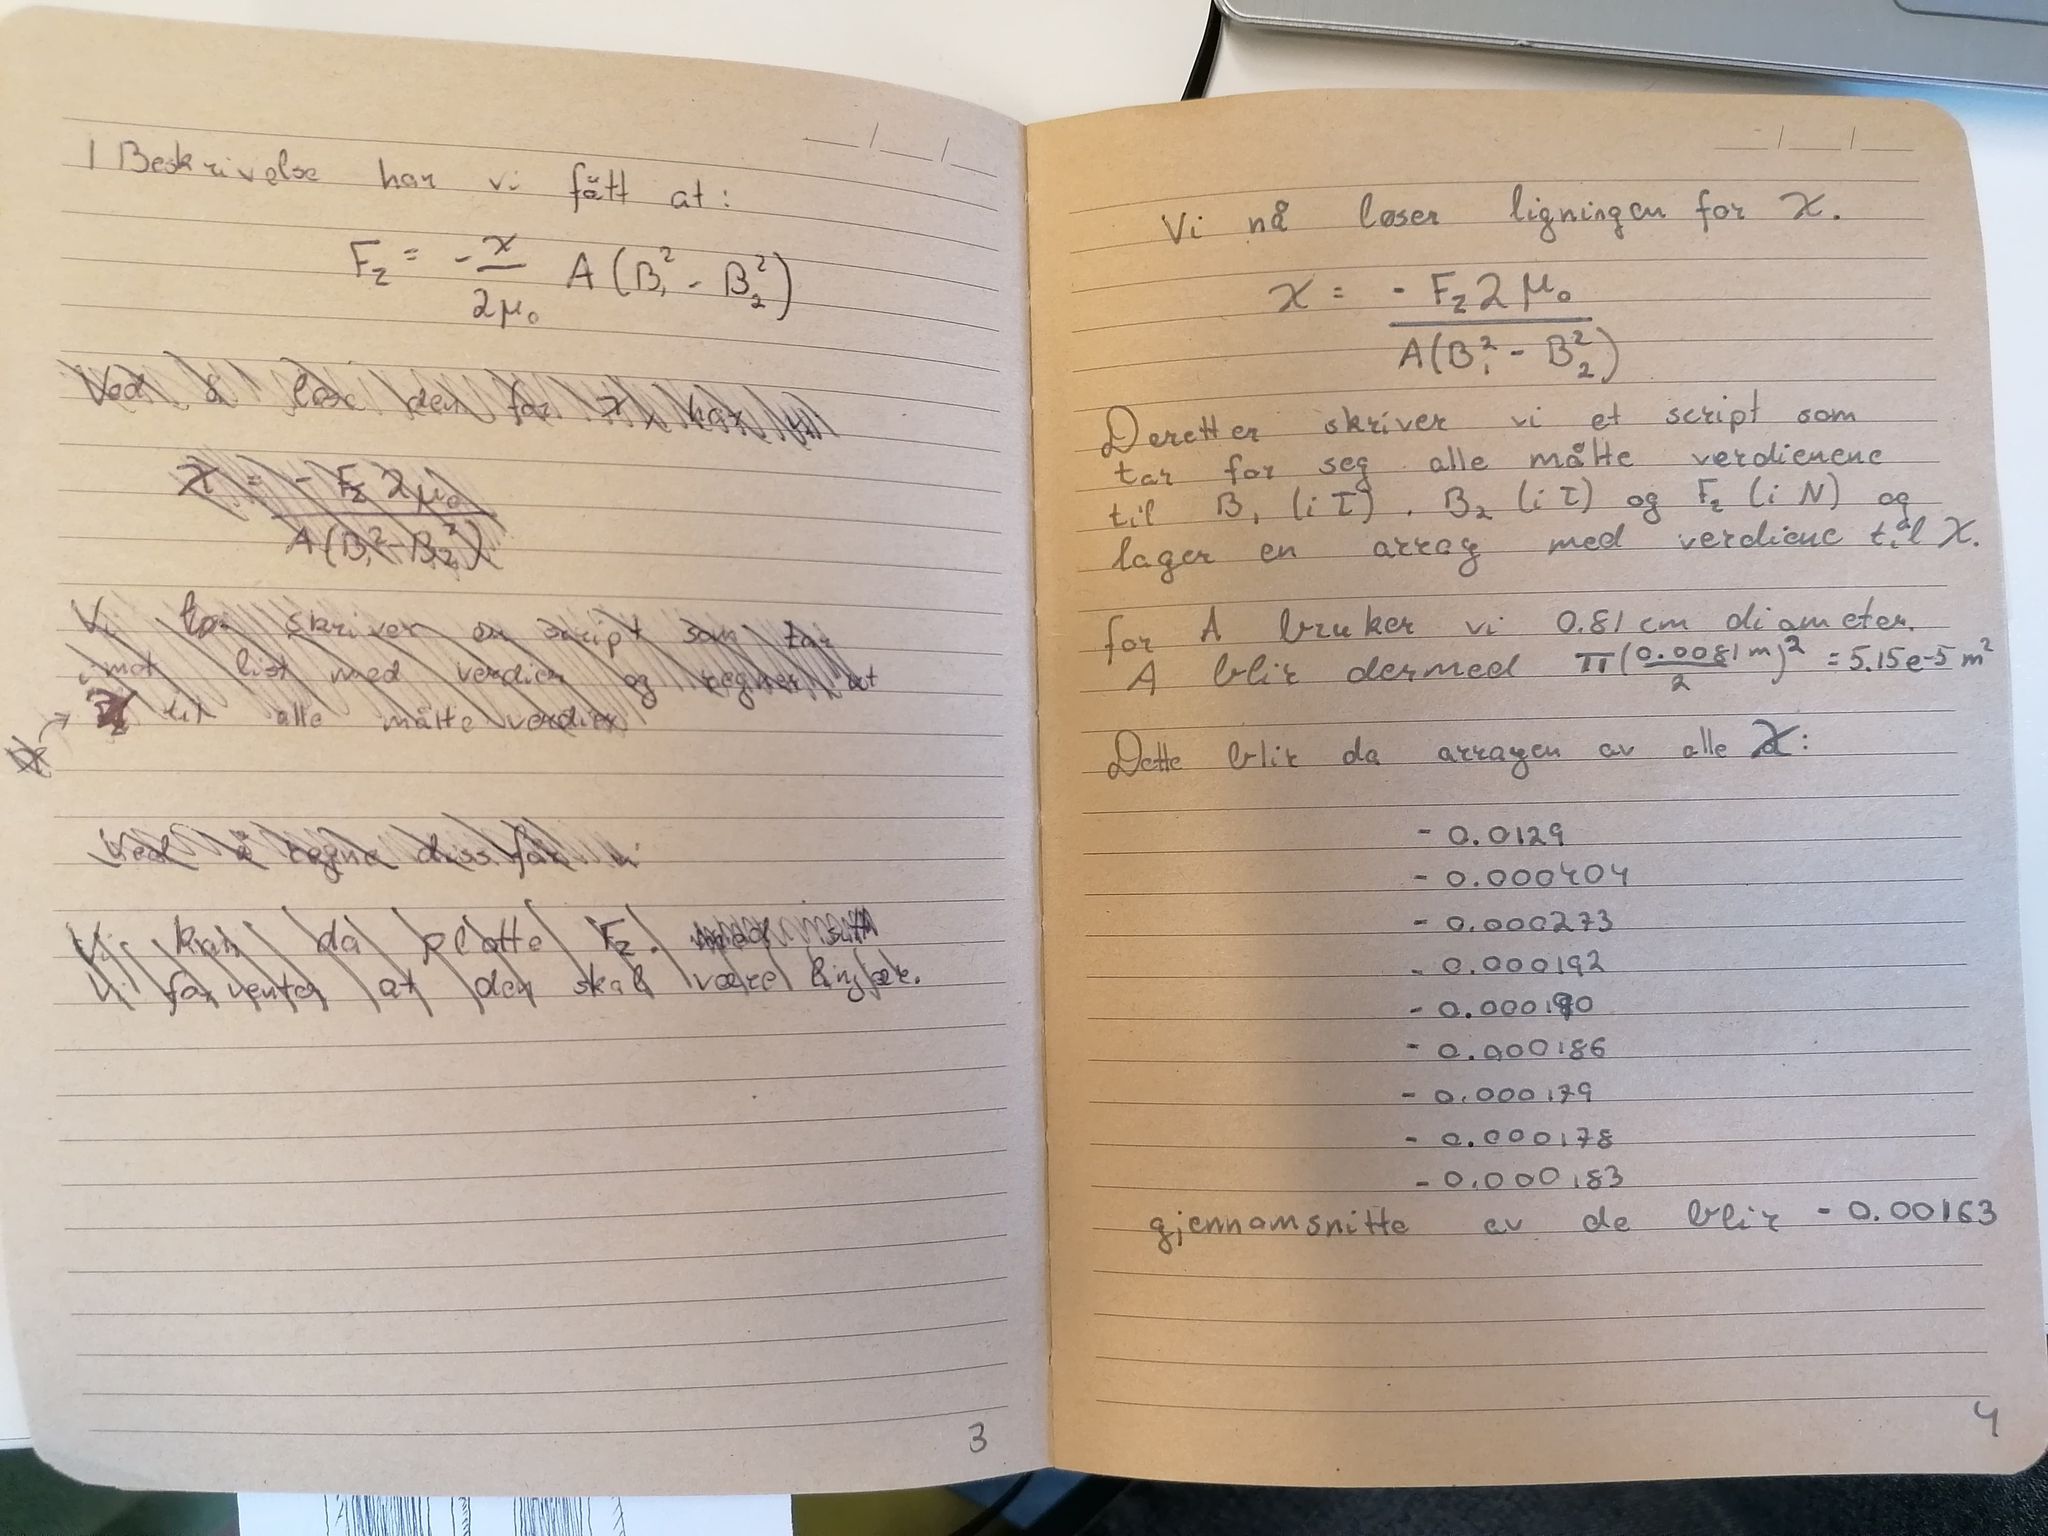 I Beskrivelse har vi fått at:
F_z = -χ/2μ₀ A(B₁² - B₂²)
Ved å løse den for χ, har vi
χ = - F_z 2μ₀ / A(B₁² - B₂²)
Vi skriver en script som tar
mot list med verdier og regner ut
til alle målte verdier
Ved å regne diss får vi
Vi kan da plotte F_z.
Vi forventer at den skal være linjær.
3
Vi nå løser ligningen for χ.
χ = - F_z 2μ₀ / A(B₁² - B₂²)
Deretter skriver vi et script som
tar for seg alle målte verdienene
til B₁ (i T), B₂ (i T) og F_z (i N) og
lager en array med verdiene til χ.
for A bruker vi 0.81 cm diameter.
A blir dermed π(0.0081m/2)² = 5.15e-5 m²
Dette blir da arrayen av alle χ:
- 0.0129
- 0.000404
- 0.000273
- 0.000192
- 0.000190
- 0.000186
- 0.000179
- 0.000178
- 0.000183
gjennomsnitte av de blir - 0.00163
4